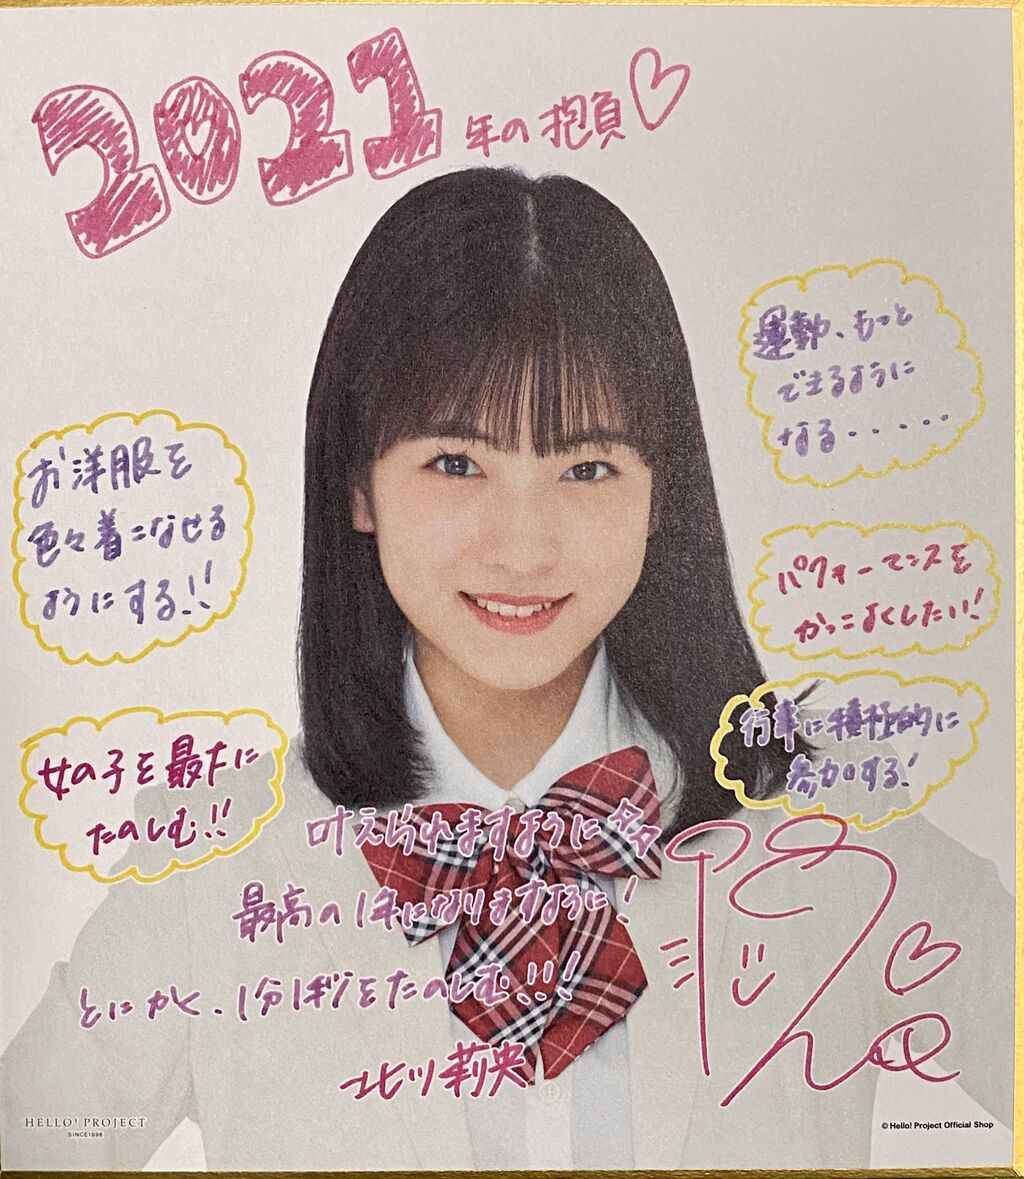 2021年の抱負♡
お洋服を
色々着こなせる
ようにする!!
女の子を最大に
たのしむ!!
運動、もっと
できるように
なる・・・・・
パフォーマンスを
かっこよくしたい!
行事に積極的に
参加する!
叶えられますように
最高の1年になりますように!
とにかく、1分1秒をたのしむ!!!
北川莉央
HELLO! PROJECT
SINCE1998
© Hello! Project Official Shop